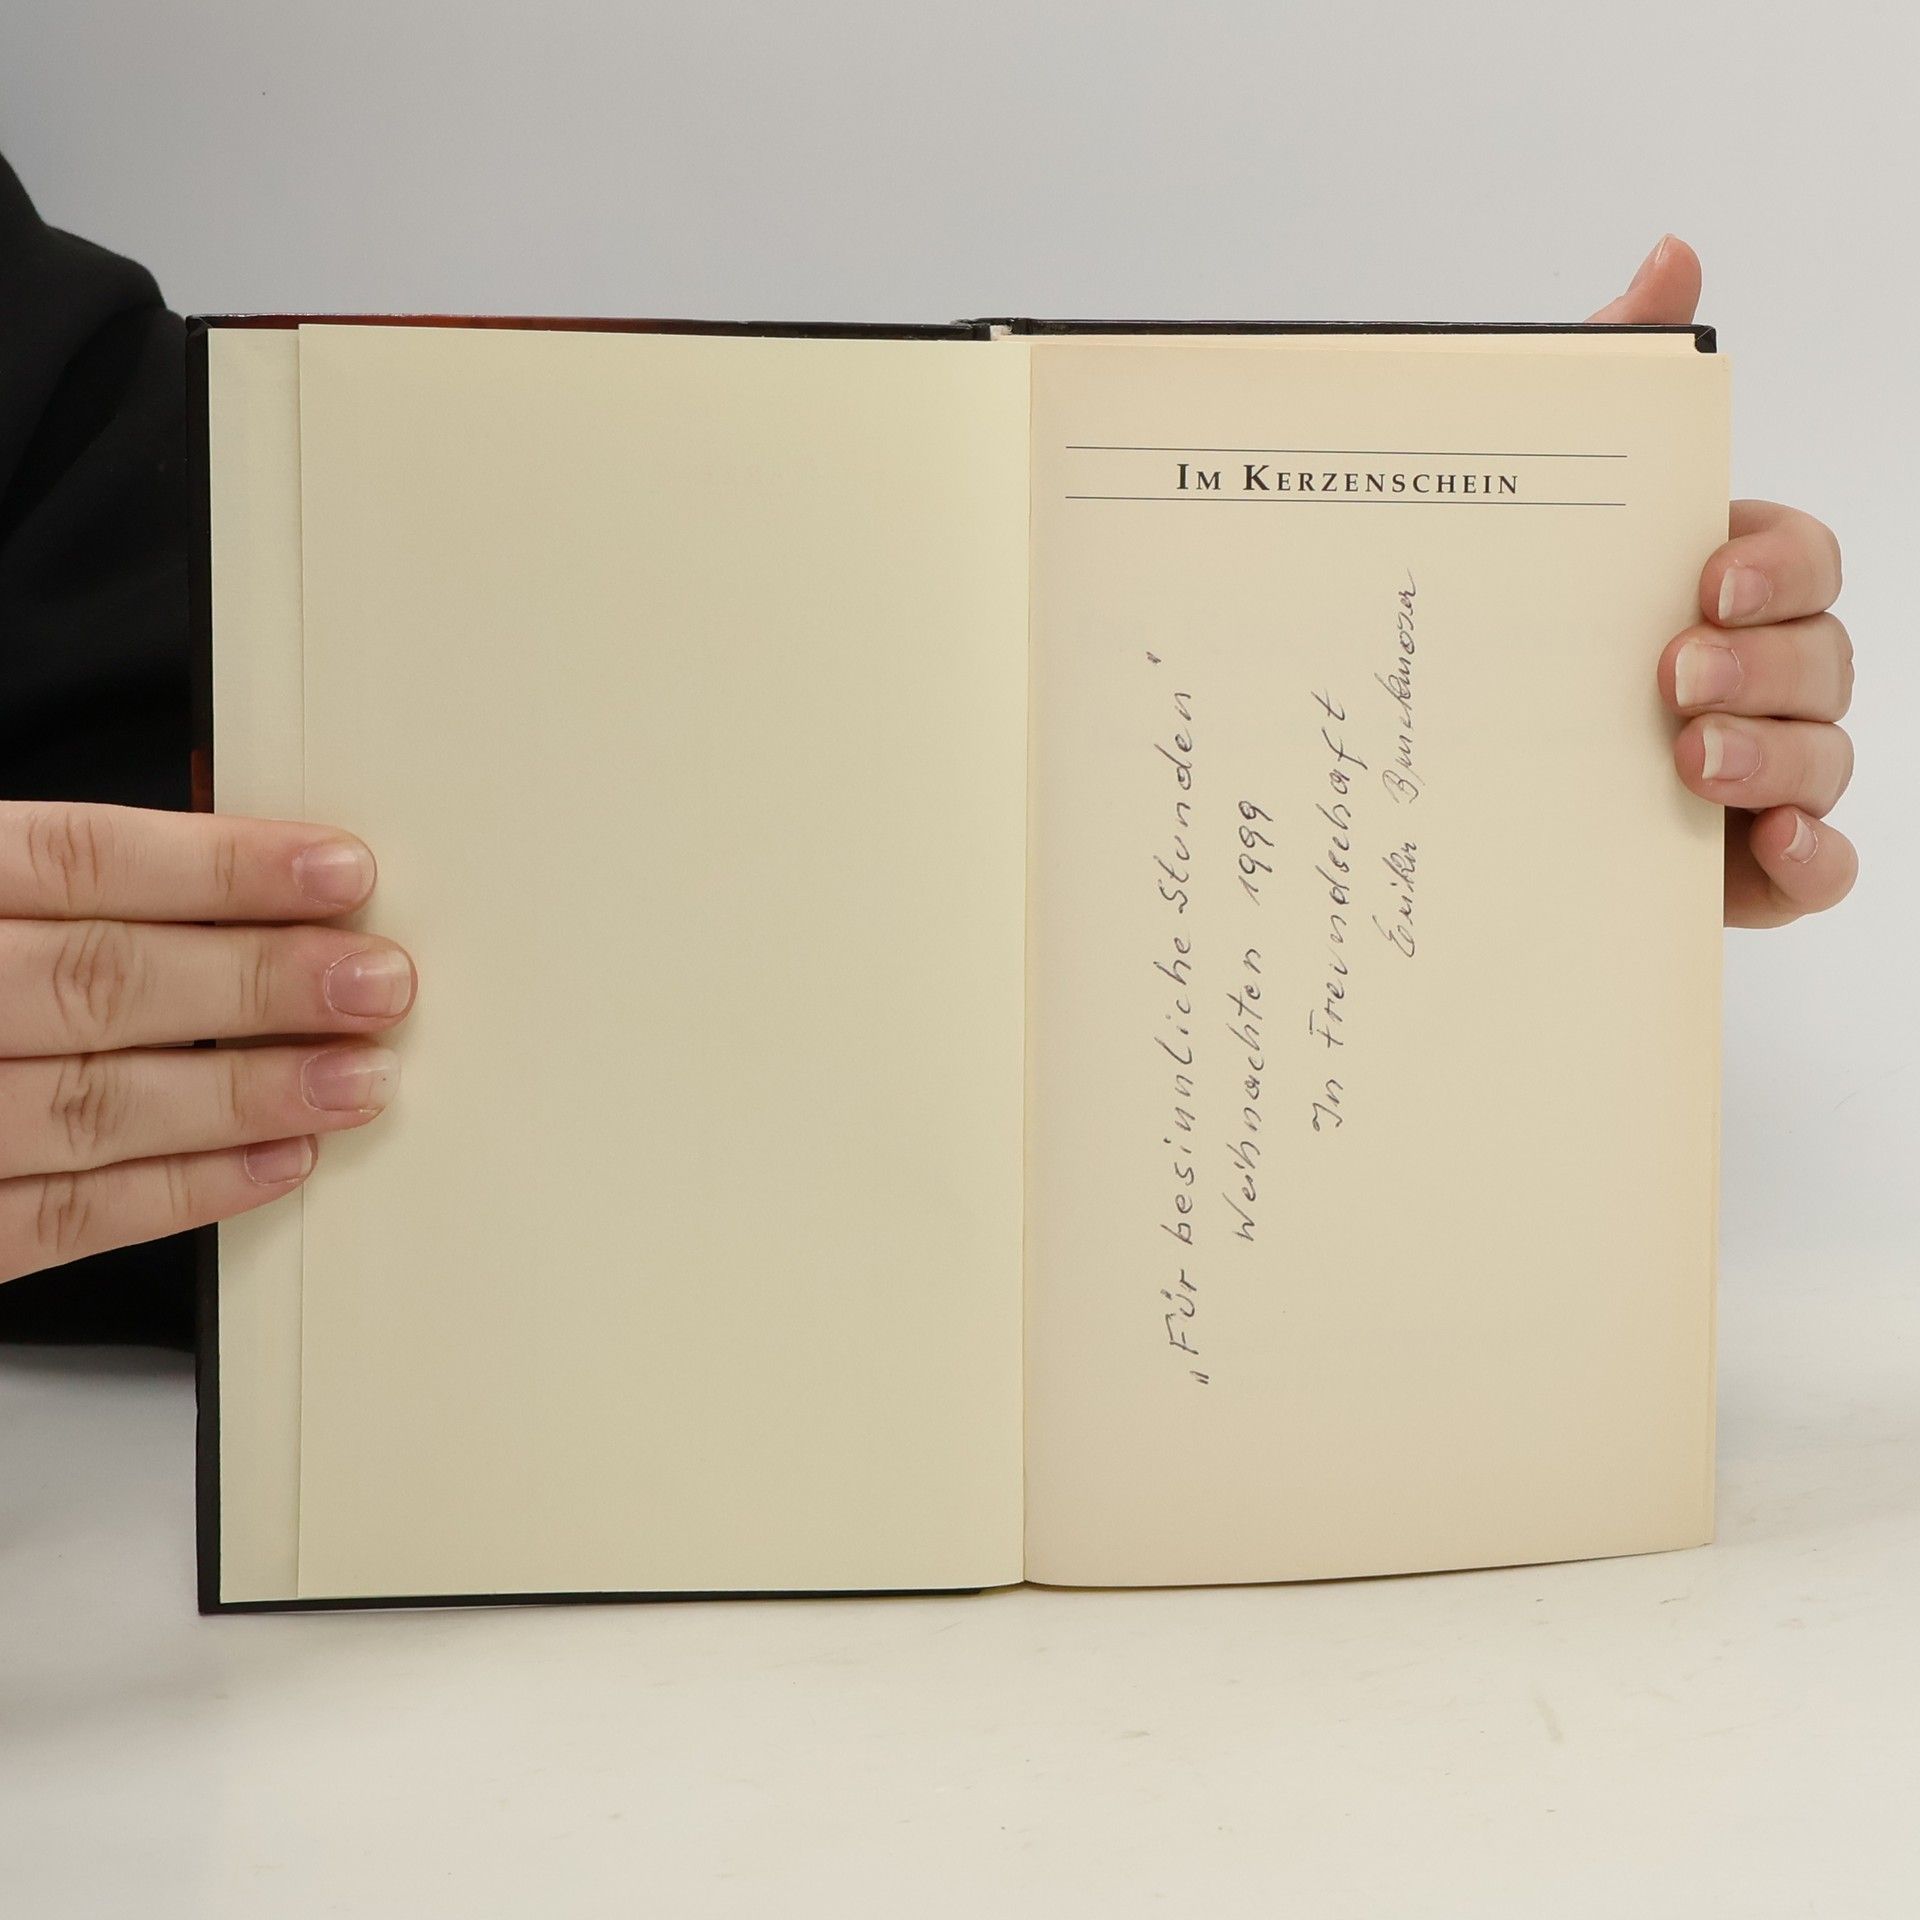 IM KERZENSCHEIN
„Für besinnliche Stunden"
Weihnachten 1999
In Freundschaft
Erika